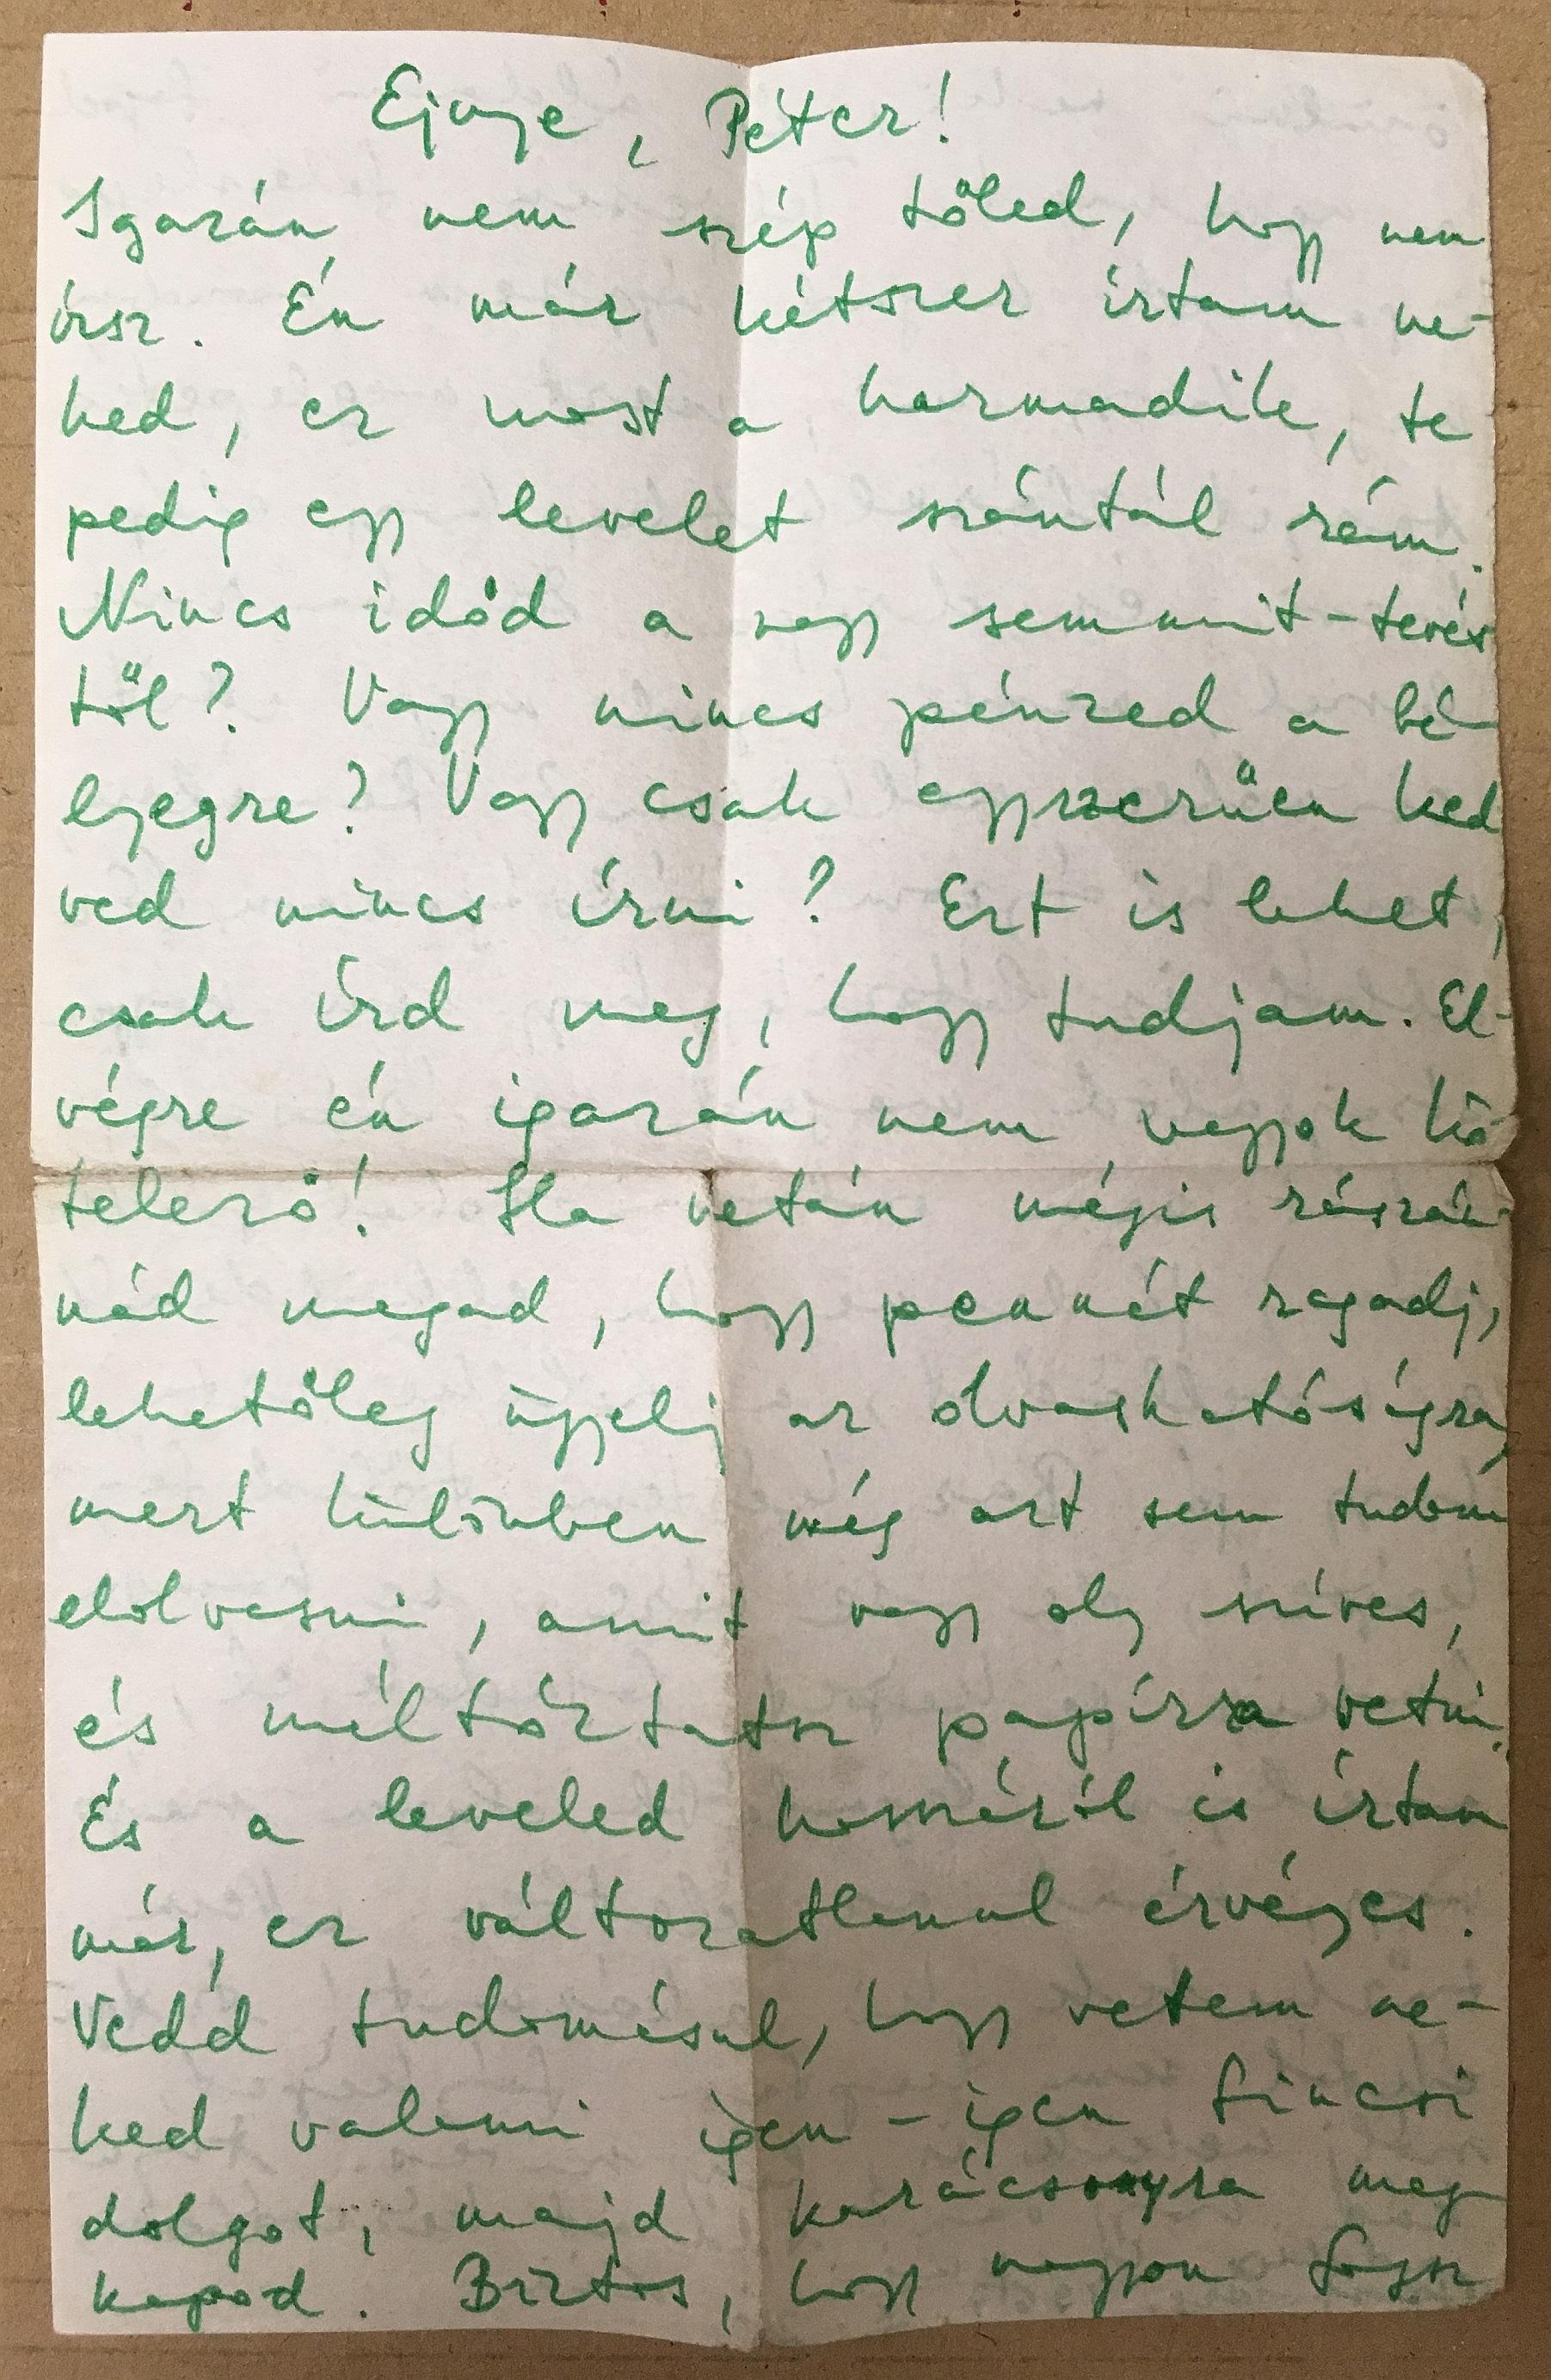 Ejnye, Péter!
Igazán nem szép tőled, hogy nem
írsz. Én már kétszer írtam ne-
ked, ez most a harmadik, te
pedig egy levelet szántál rám.
Nincs időd a nagy semmit-tevés
től? Vagy nincs pénzed a bé-
lyegre? Vagy csak egyszerűen ked
ved nincs írni? Ezt is lehet,
csak írd meg, hogy tudjam. El-
végre én igazán nem vagyok kö
telező! Ha netán mégis rászán-
nád magad, hogy pennát ragadj,
lehetőleg ügyelj az olvashatóságra,
mert különben még azt sem tudom
elolvasni, amit vagy oly szíves,
és méltóztatsz papírra vetni.
És a leveled hosszáról is írtam
már, ez változatlanul érvényes.
Vedd tudomásul, hogy vettem ne-
ked valami igen-igen fincsi
dolgot, majd karácsonyra meg
kapod. Biztos, hogy nagyon fogsz